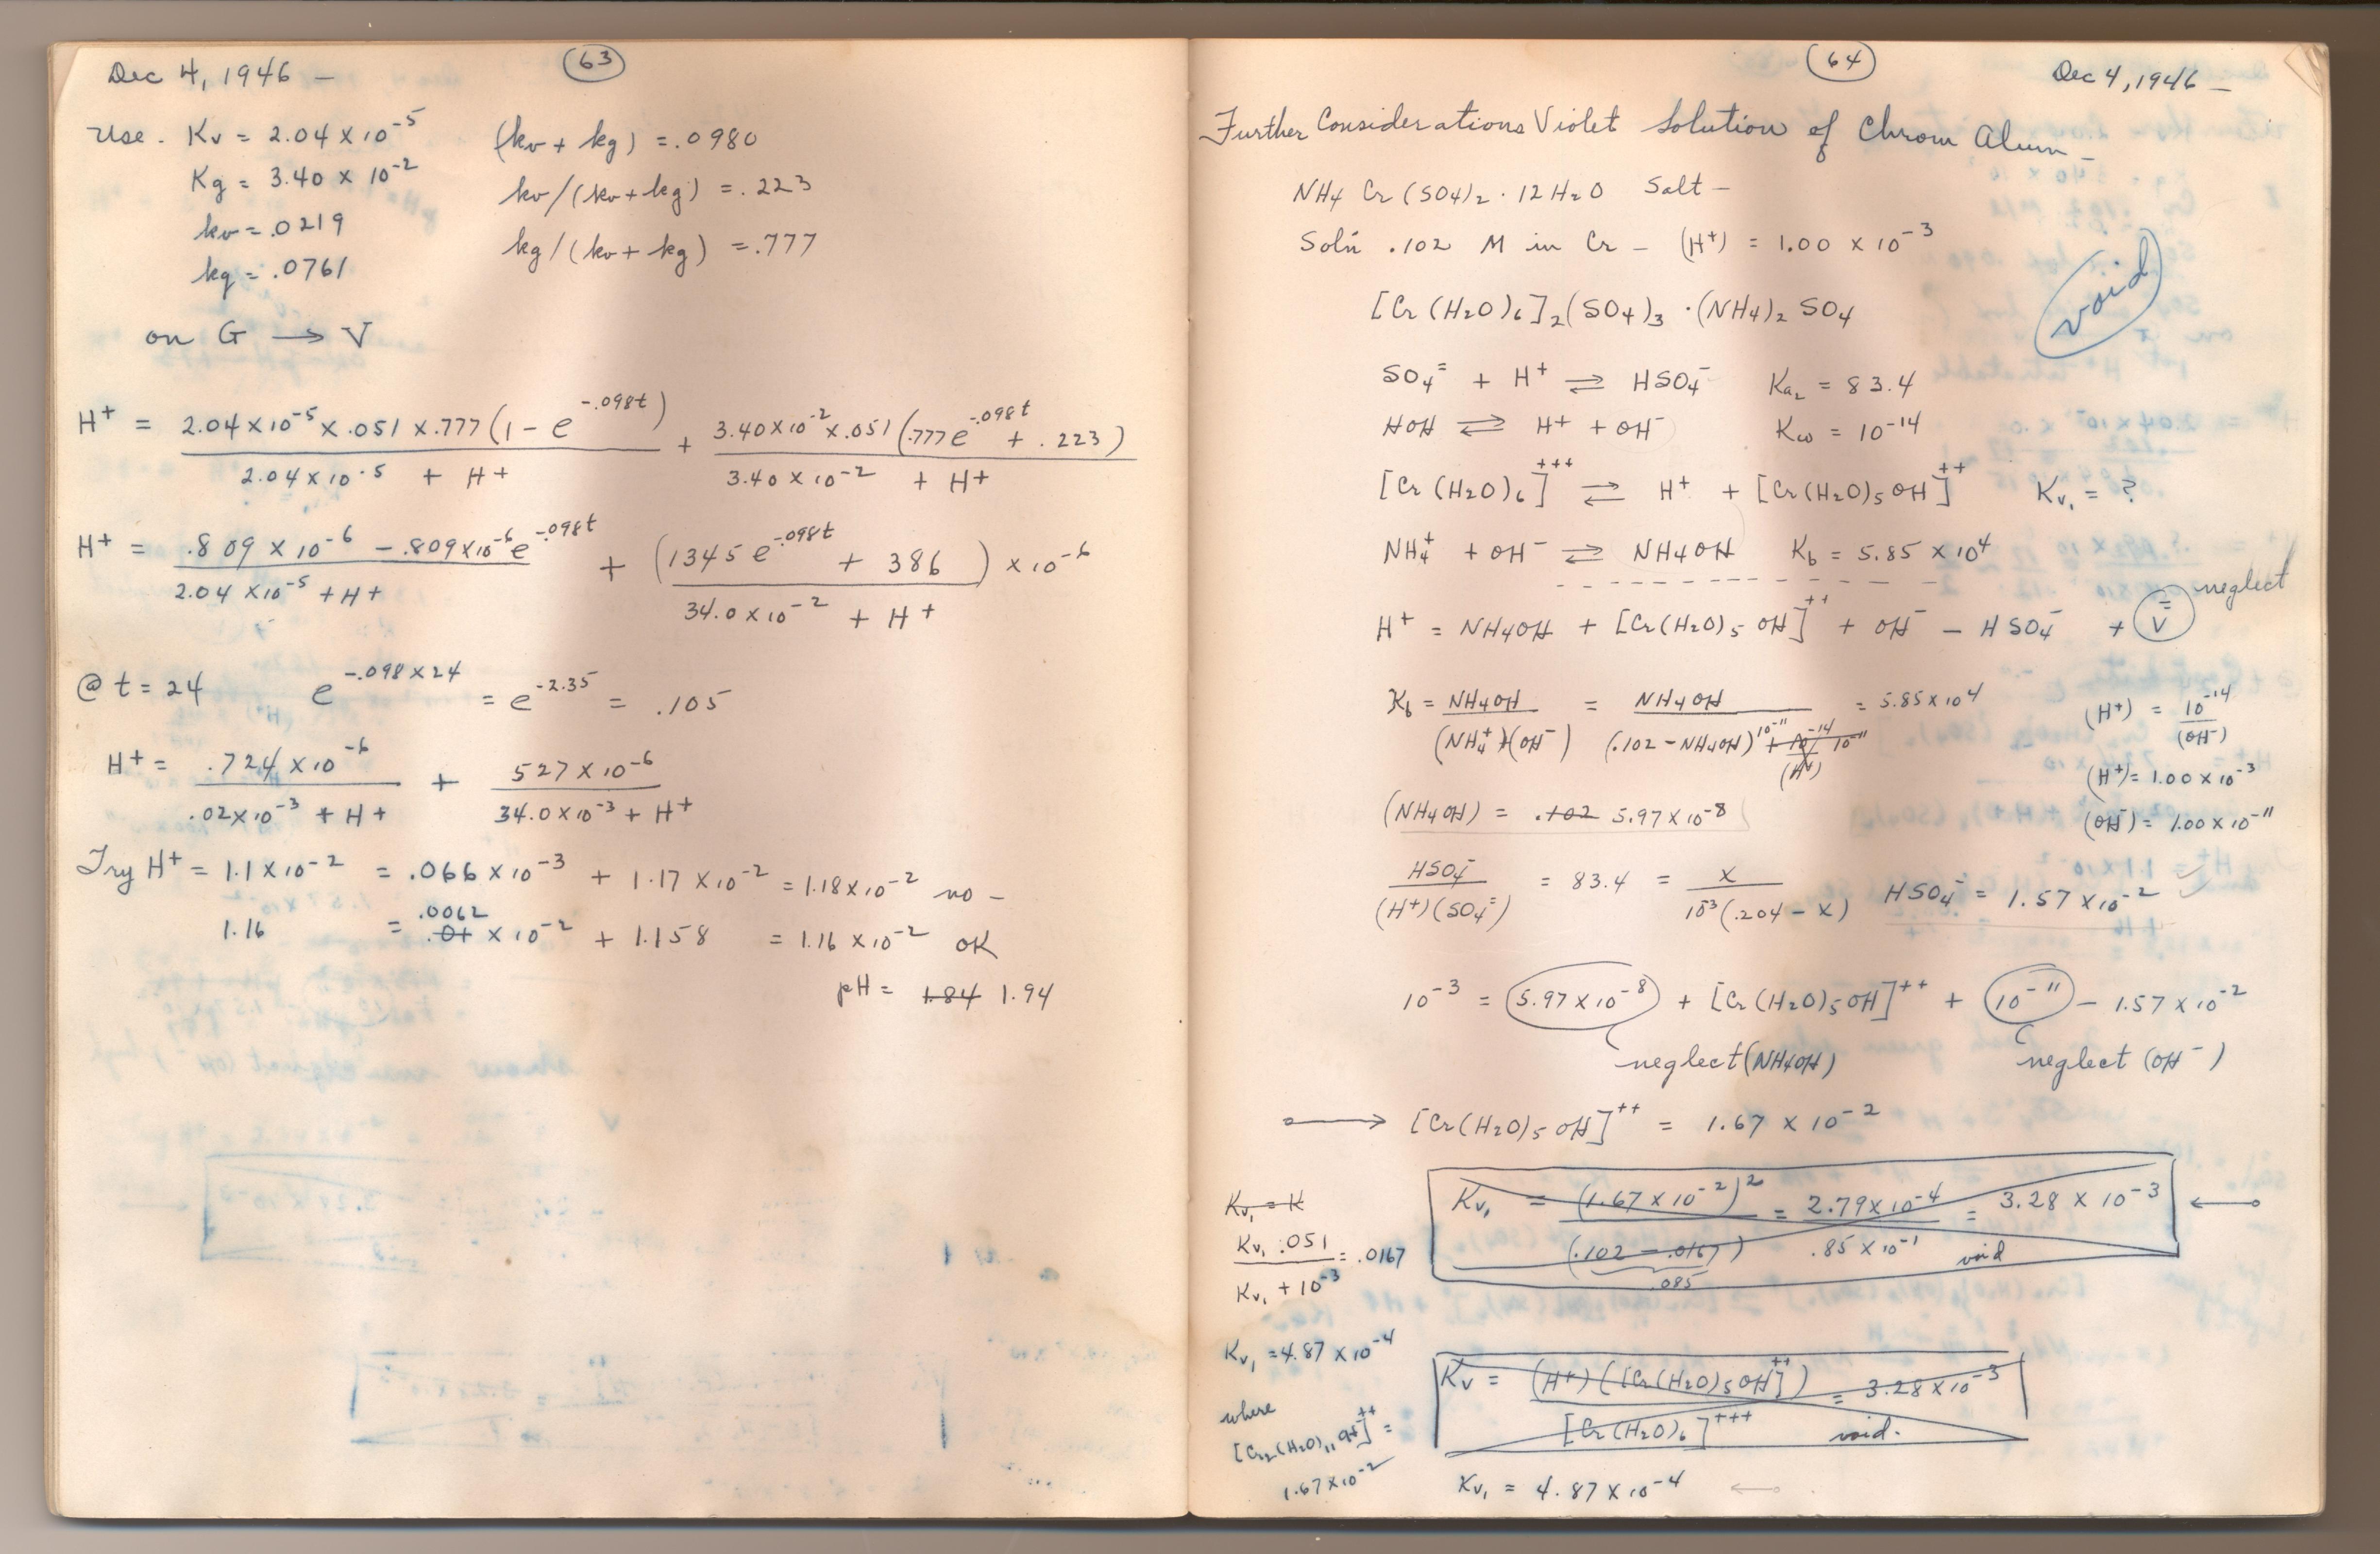 Dec 4, 1946 —
63
Use. Kv = 2.04 × 10⁻⁵ (kv + kg) = .0980
Kg = 3.40 × 10⁻² kv/(kv + kg) = .223
kv = .0219 kg/(kv + kg) = .777
kg = .0761
on G → V
H⁺ = 2.04×10⁻⁵ × .051 × .777 (1 − e^-.098t) / 2.04×10⁻⁵ + H⁺ + 3.40×10⁻² × .051 (.777e^-.098t + .223) / 3.40×10⁻² + H⁺
H⁺ = .809 × 10⁻⁶ − .809×10⁻⁶e^-.098t / 2.04×10⁻⁵ + H⁺ + (1345 e^-.098t + 386 / 34.0×10⁻² + H⁺) × 10⁻⁶
@ t = 24 e^-.098×24 = e^-2.35 = .105
H⁺ = .724 × 10⁻⁶ / .02×10⁻³ + H⁺ + 527 × 10⁻⁶ / 34.0×10⁻³ + H⁺
Try H⁺ = 1.1 × 10⁻² = .066 × 10⁻³ + 1.17 × 10⁻² = 1.18×10⁻² no –
1.16 = .01 .0062 × 10⁻² + 1.158 = 1.16 × 10⁻² OK
pH = 1.84 1.94
64
Dec 4, 1946 —
Further Considerations Violet Solution of Chrom Alum —
NH4 Cr (SO4)2 · 12 H2O Salt —
Soln .102 M in Cr – (H⁺) = 1.00 × 10⁻³
void
[Cr (H2O)6]2(SO4)3 · (NH4)2 SO4
SO4⁼ + H⁺ ⇌ HSO4⁻ Ka2 = 83.4
HOH ⇌ H⁺ + OH⁻ Kw = 10⁻¹⁴
[Cr (H2O)6]⁺⁺⁺ ⇌ H⁺ + [Cr(H2O)5 OH]⁺⁺ Kv1 = ?
NH4⁺ + OH⁻ ⇌ NH4OH Kb = 5.85 × 10⁴
neglect
H⁺ = NH4OH + [Cr(H2O)5 OH]⁺⁺ + OH⁻ − HSO4⁻ + V⁼
Kb = NH4OH / (NH4⁺)(OH⁻) = NH4OH / (.102 − NH4OH) 10⁻¹¹ + 10⁻¹⁴ 10⁻¹¹ (H⁺) = 5.85×10⁴
(H⁺) = 10⁻¹⁴ / (OH⁻)
(H⁺) = 1.00 × 10⁻³
(OH⁻) = 1.00 × 10⁻¹¹
(NH4OH) = .102 5.97×10⁻⁸
HSO4⁻ / (H⁺)(SO4⁼) = 83.4 = x / 10⁻³(.204 − x) HSO4⁻ = 1.57 × 10⁻²
10⁻³ = 5.97×10⁻⁸ + [Cr(H2O)5OH]⁺⁺ + 10⁻¹¹ − 1.57 × 10⁻²
neglect (NH4OH) neglect (OH⁻)
→ [Cr(H2O)5 OH]⁺⁺ = 1.67 × 10⁻²
Kv1 = (1.67 × 10⁻²)² / (.102 − .0167) .085 = 2.79×10⁻⁴ / .85 × 10⁻¹ = 3.28 × 10⁻³ ←
void
Kv1 = K
Kv1 .051 / Kv1 + 10⁻³ = .0167
Kv1 = 4.87 × 10⁻⁴
where
1.67×10⁻²
Kv = (H⁺)([Cr(H2O)5OH]⁺⁺) / [Cr(H2O)6]⁺⁺⁺ = 3.28×10⁻³
void.
Kv1 = 4.87 × 10⁻⁴ ←